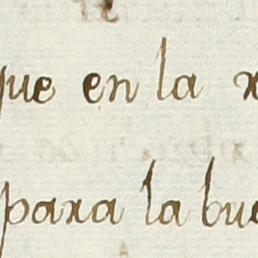 que en la
para la bue